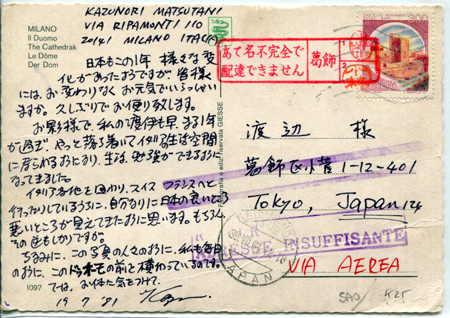 MILANO
Il Duomo
The Cathedrak
Le Dôme
Der Dom
KAZUNORI MATSUTANI
VIA RIPAMONTI 110
20141 MILANO ITALIA
日本もこの1年 様々な変
化があったようですが皆様
には、お変わりなく お元気でいらっしゃい
ますか。久しぶりでお便り致します。
お影様で、私の渡伊も早、まる1年
が過ぎ やっと落ち着いてイタリア生活空間
に居られるようになり、生活、勉強ができるように
なってきました。
イタリア各地を回わり、スイス フランスへと
行ったりしているうちに、自分なりに日本の良いところ
悪いところが見えてきたように思います。もちろん
ちなみに、この写真の人々のように、私も毎日
のように、この前を横切っているのです。
では、お体に気をつけて。
19. 7. '81
1097
あて名不完全で
配達できません
葛飾
300
渡辺 様
葛飾区小菅1-12-401
Tokyo, Japan 124
ADRESSE INSUFFISANTE
JAPAN
VIA AEREA